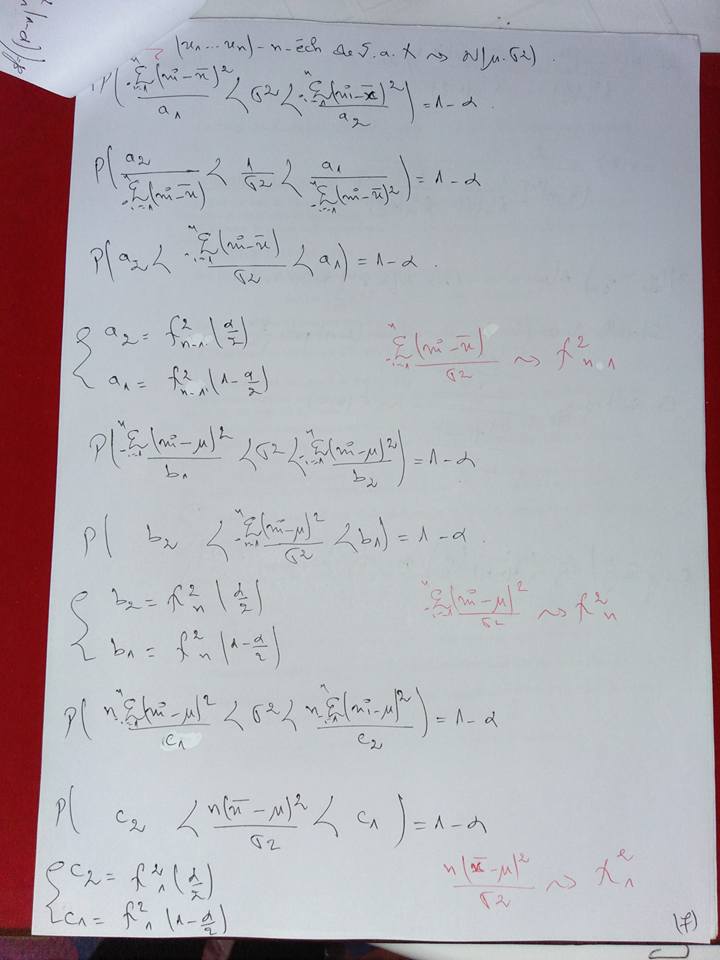 (x₁...xₙ) - n - éch de v.a. X ⇝ N(μ.σ2).
P( ∑ⁿᵢ₌₁(xi - x̄)² / a₁ < σ2 < ∑ⁿᵢ₌₁(xi - x̄)² / a₂ ) = 1 - α
P( a₂ / ∑ⁿᵢ₌₁(xi - x̄) < 1/σ2 < a₁ / ∑ⁿᵢ₌₁(xi - x̄)² ) = 1 - α
P( a₂ < ∑ⁿᵢ₌₁(xi - x̄) / σ2 < a₁ ) = 1 - α.
{ a₂ = χ²ₙ₋₁ (α/2)
a₁ = χ²ₙ₋₁ (1 - α/2)
∑ⁿᵢ₌₁(xi - x̄) / σ2 ⇝ χ²ₙ₋₁
P( ∑ⁿᵢ₌₁(xi - μ)² / b₁ < σ2 < ∑ⁿᵢ₌₁(xi - μ)² / b₂ ) = 1 - α
P( b₂ < ∑ⁿᵢ₌₁(xi - μ)² / σ2 < b₁ ) = 1 - α.
{ b₂ = χ²ₙ (α/2)
b₁ = χ²ₙ (1 - α/2)
∑ⁿᵢ₌₁(xi - μ)² / σ2 ⇝ χ²ₙ
P( n ∑ⁿᵢ₌₁(xi - μ)² / c₁ < σ2 < n ∑ⁿᵢ₌₁(xi - μ)² / c₂ ) = 1 - α
P( c₂ < n(x̄ - μ)² / σ2 < c₁ ) = 1 - α
{ c₂ = χ²₁ (α/2)
c₁ = χ²₁ (1 - α/2)
n(x̄ - μ)² / σ2 ⇝ χ²₁
(7)